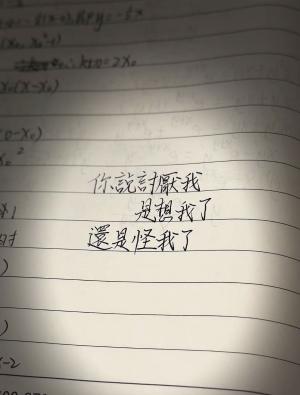 (x₀, x₀²-1)
k+0=2x₀
x₀(x-x₀)
0-x₀)
x₀²
你說討厭我
是想我了
還是怪我了
)
)
-2